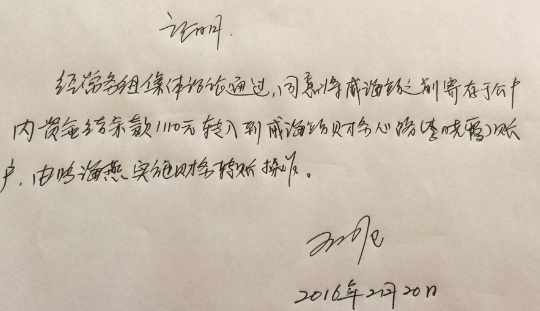 证明
经常务组集体讨论通过,同意将威海站之前寄存于公户
内资金结余款1110元转入到威海站财务人员(李晓霞)账
户,由鸣海燕实施财务转账操作。
2016年2月20日